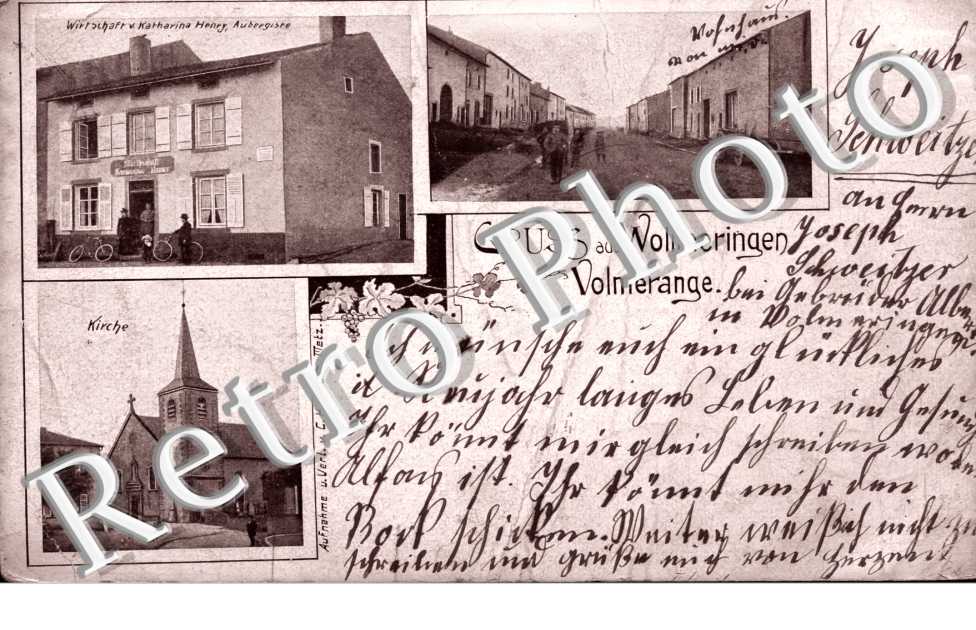 Wirtschaft v. Katharina Henry, Aubergiste
Wirtschaft
Wohnhaus
von
Joseph
Schweitzer
Gruss aus Wollmeringen,
Volmerange.
an Herrn
Joseph
Schweitzer
bei Gebrüder
in Wolmeringen
Kirche
Aufnahme u. Verl. v. Metz.
Ich wünsche euch ein glückliches
Neujahr langes Leben und
Ihr könnt mir gleich schreiben wo
Alfons ist. Ihr könnt mihr den
Rock schicken. Weiter weiß ich nicht zu
schreiben und grüße euch von Herzen
Retro Photo